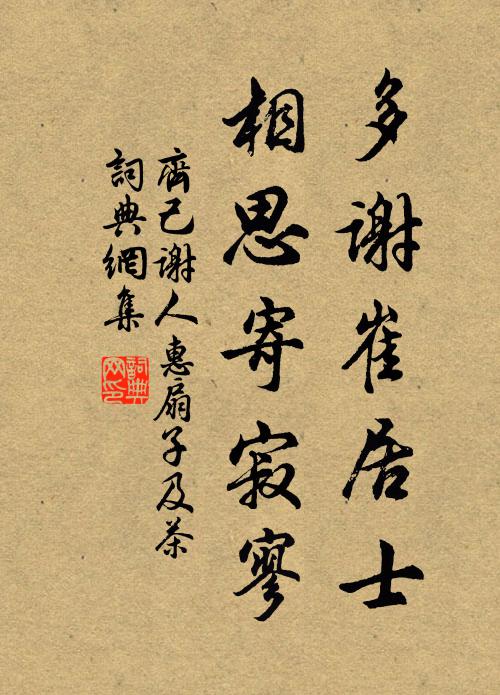 多謝崔居士
相思寄寂寥
齊己謝人惠扇子及茶
詞典網集
詞典网印